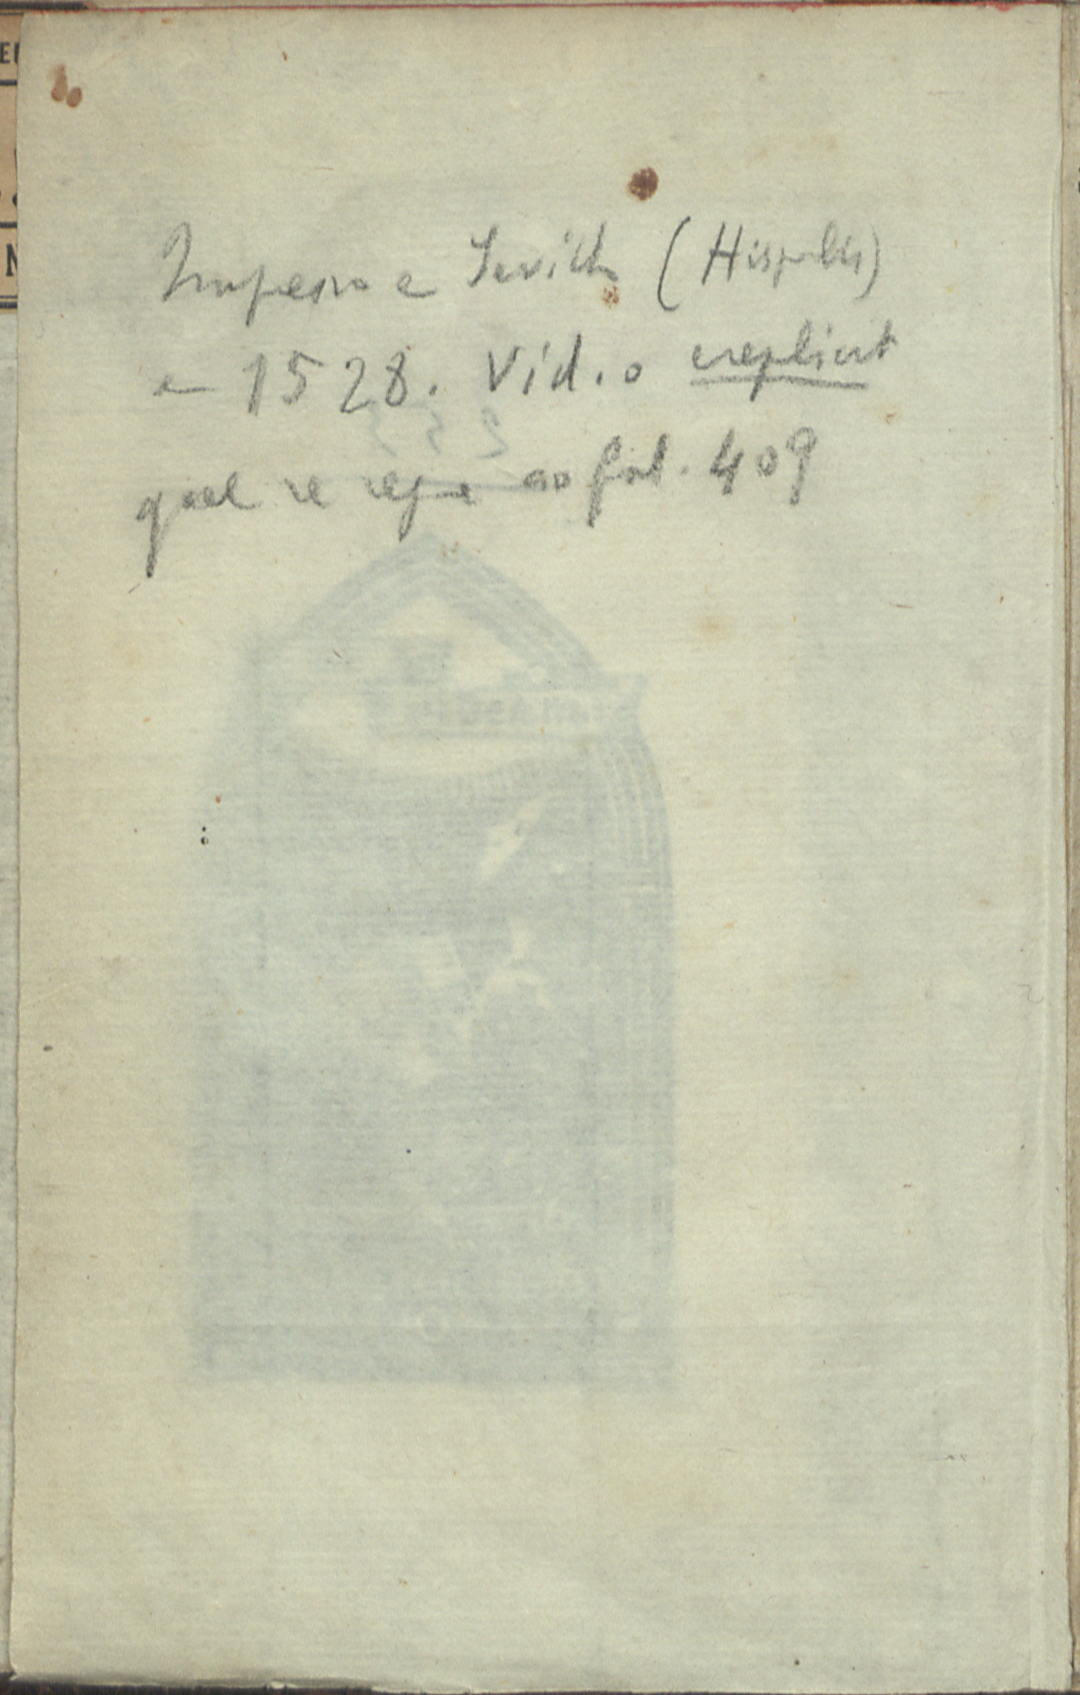 Impresso em Sevilha (Hispalis)
em 1528. Vid. o explicit
que se segue ao fol. 409